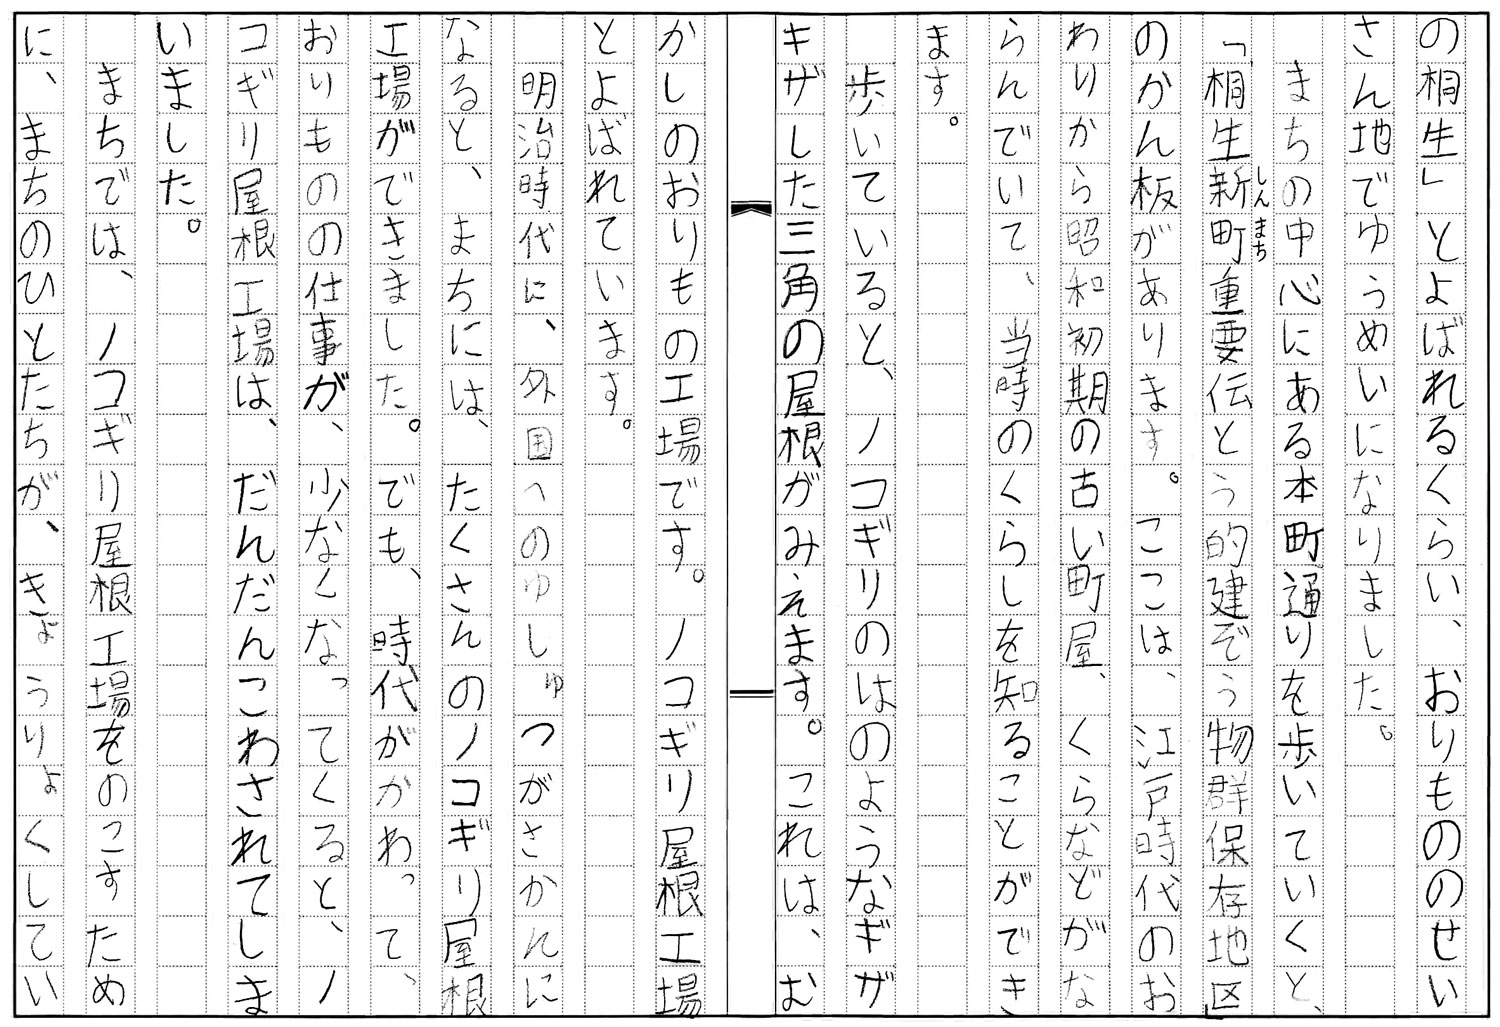 の桐生」とよばれるくらい、おりもののせい
さん地でゆうめいになりました。
まちの中心にある本町通りを歩いていくと、
「桐生新町重要伝とう的建ぞう物群保存地区」
しんまち
のかん板があります。ここは、江戸時代のお
わりから昭和初期の古い町屋、くらなどがな
らんでいて、当時のくらしを知ることができ
ます。
歩いていると、ノコギリのはのようなギザ
ギザした三角の屋根がみえます。これは、む
かしのおりもの工場です。ノコギリ屋根工場
とよばれています。
明治時代に、外国へのゆしゅつがさかんに
なると、まちには、たくさんのノコギリ屋根
工場ができました。でも、時代がかわって、
おりものの仕事が、少なくなってくると、ノ
コギリ屋根工場は、だんだんこわされてしま
いました。
まちでは、ノコギリ屋根工場をのこすため
に、まちのひとたちが、きょうりょくしてい